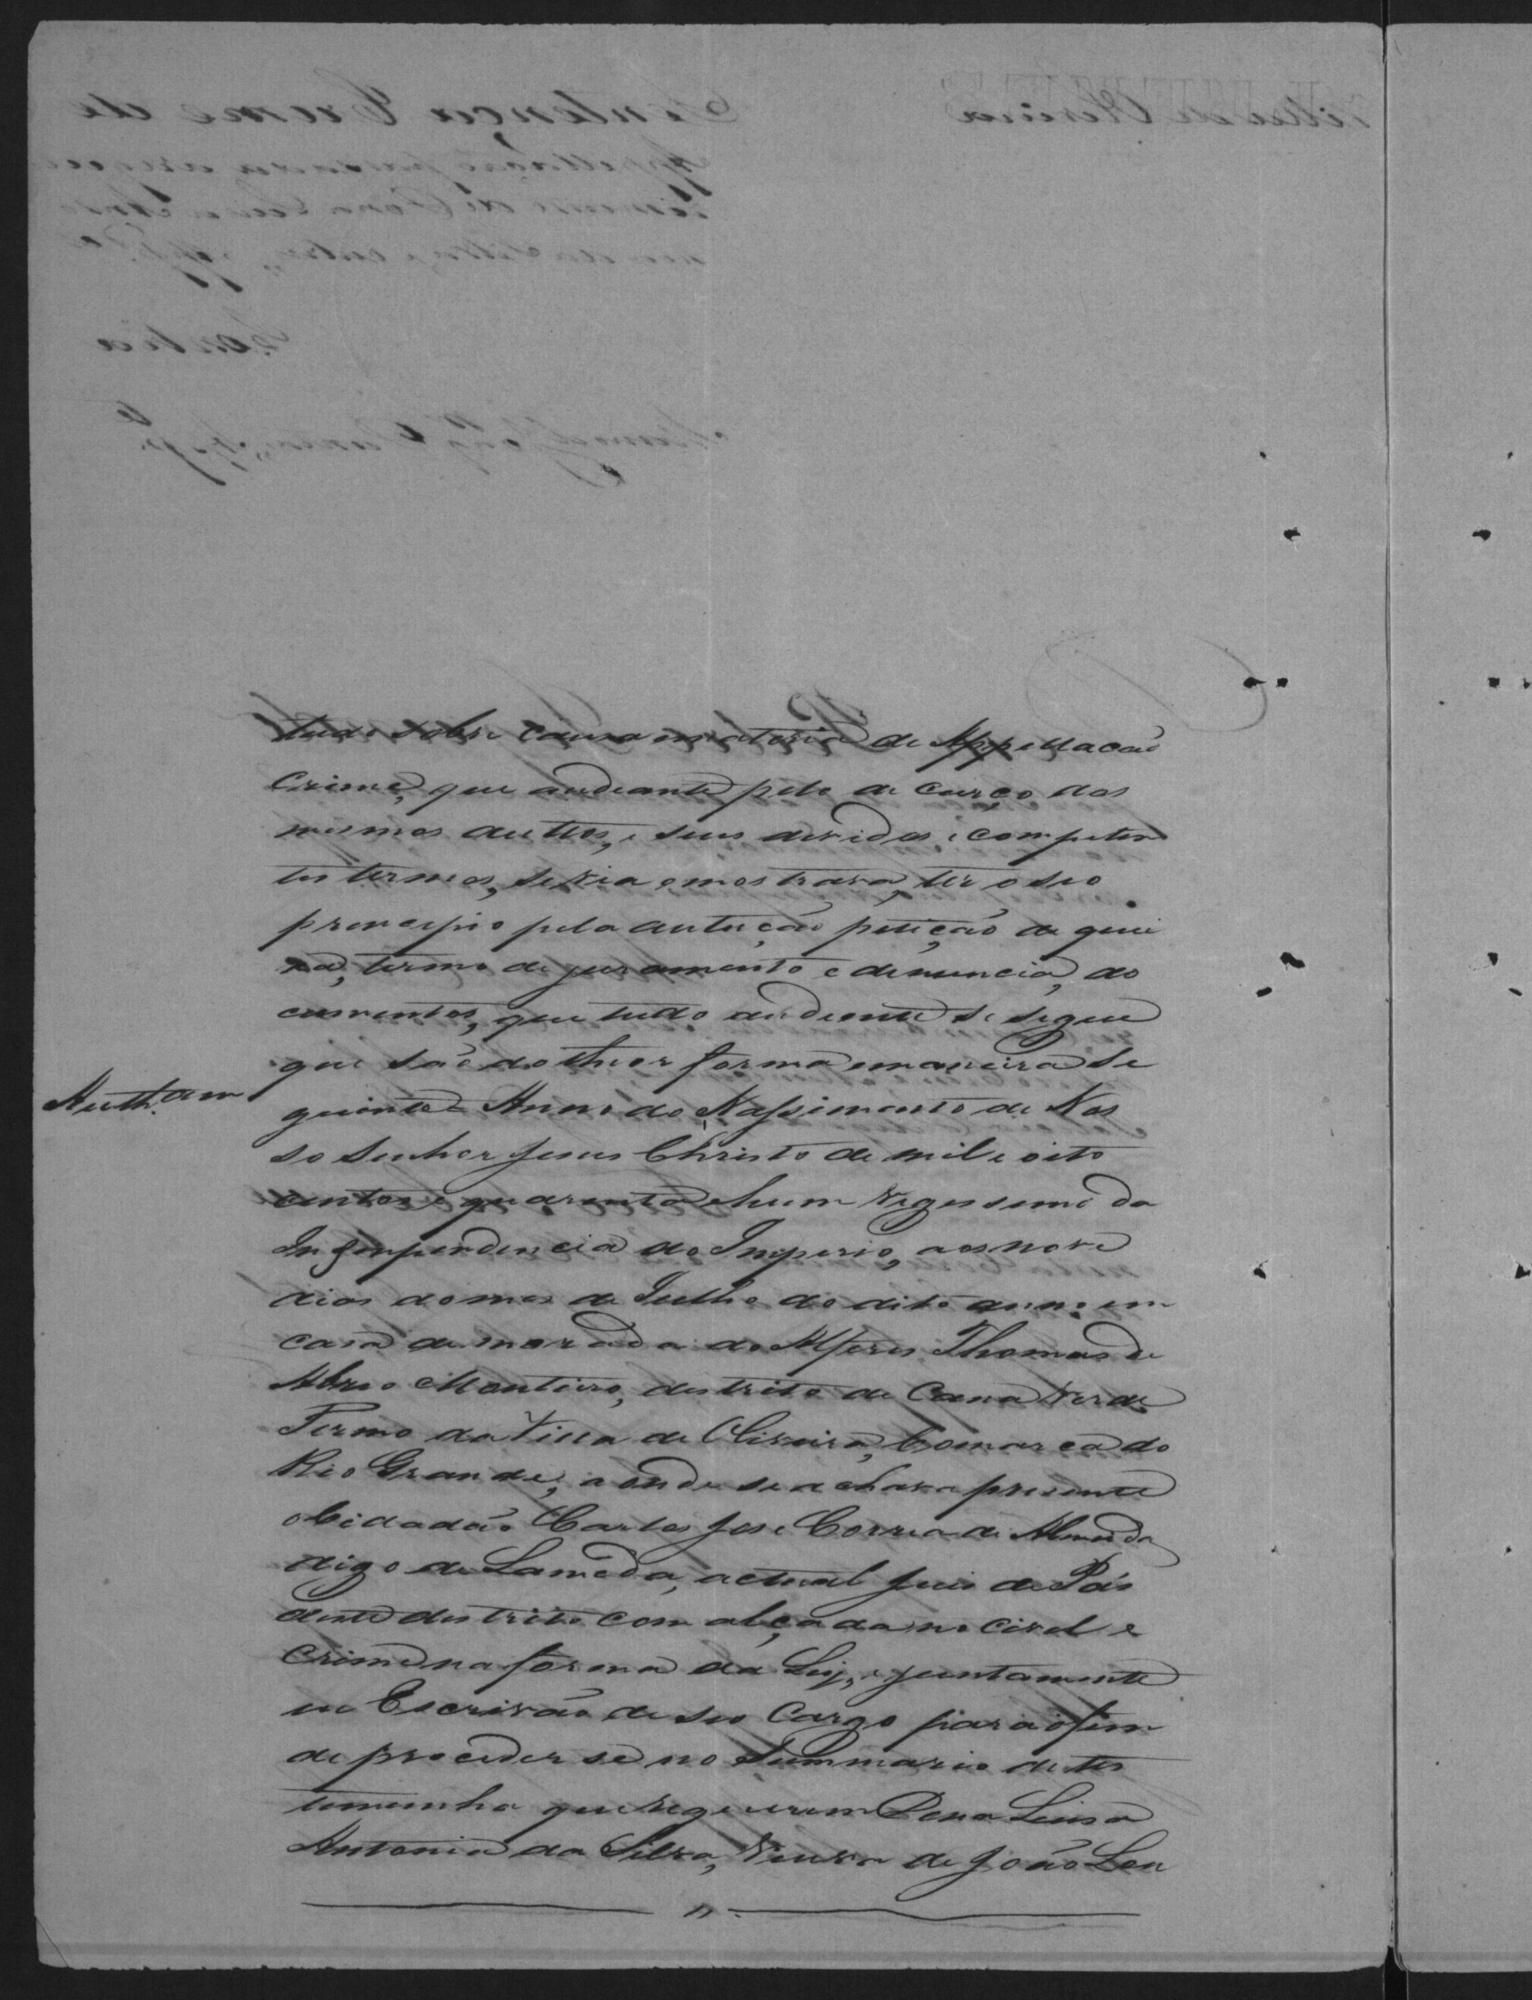 tudo sobre causa e materia de Appellação
Crime, que aodeante pelo de curço dos
mesmos auttos, e seus devidos e competen
tes termos, se via e mostrava, ter o seo
principio pela autuação petição de quei
xa, termo de juramento e denuncia, do
cumentos, que tudo aodeente se segue
que são do theor forma e maneira se
Auth.am
guinte Anno do Nassimento de Nos
so Senhor Jesus Christo de mil e oito
centos e quarenta e hum Vigessimo da
Independencia do Imperio, aos nove
dias do mes de Julho do dito anno em
casa de morada do Alferes Thomas de
Abreo Monteiro, destrito de Cana Verde
Termo da Villa de Oliveira, Comarca do
Rio Grande, aonde se achava presente
o Cidadão Carlos Jose Correa de Almeida
digo de Lameda, actual Juis de Pás
deste destrito com alçada no civel e
Crime na forma da Ley, e juntamente
eu Escrivão de seo Cargo para o fim
de proceder se no Summario de tes
temunha que requerem Dona Luisa
Antonia da Silva, Viuva de João Lou